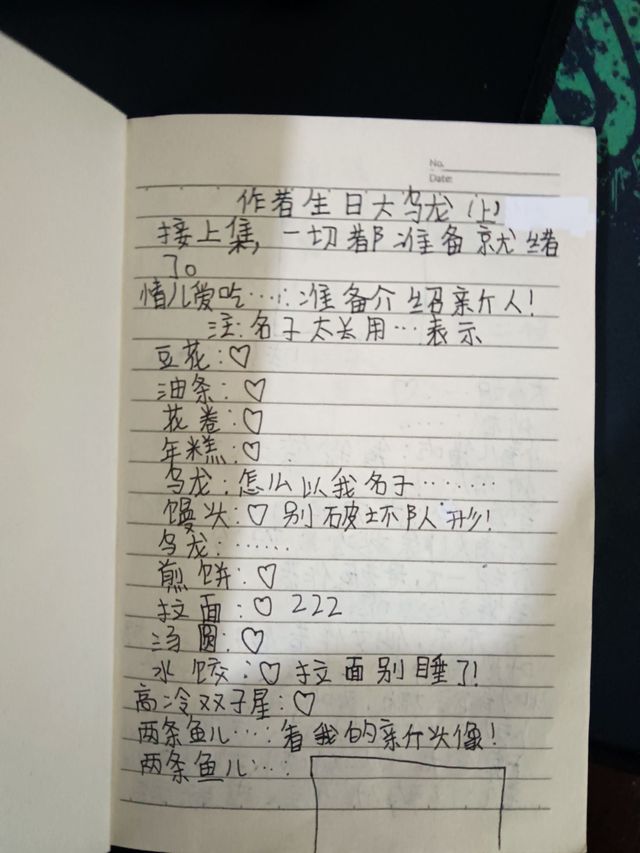 No.
Date:
作者生日大乌龙(上)
接上集,一切都准备就绪
了。
情儿爱吃……:准备介绍亲介人!
注:名子太长用…表示
豆花:♡
油条:♡
花卷:♡
年糕:♡
乌龙:怎么以我名子………
馒头:♡别破坏队形!
乌龙:……
煎饼:♡
拉面:♡222
汤圆:♡
水饺:♡拉面别睡了!
高冷双子星:♡
两条鱼儿…:看我的亲介头像!
两条鱼儿…: